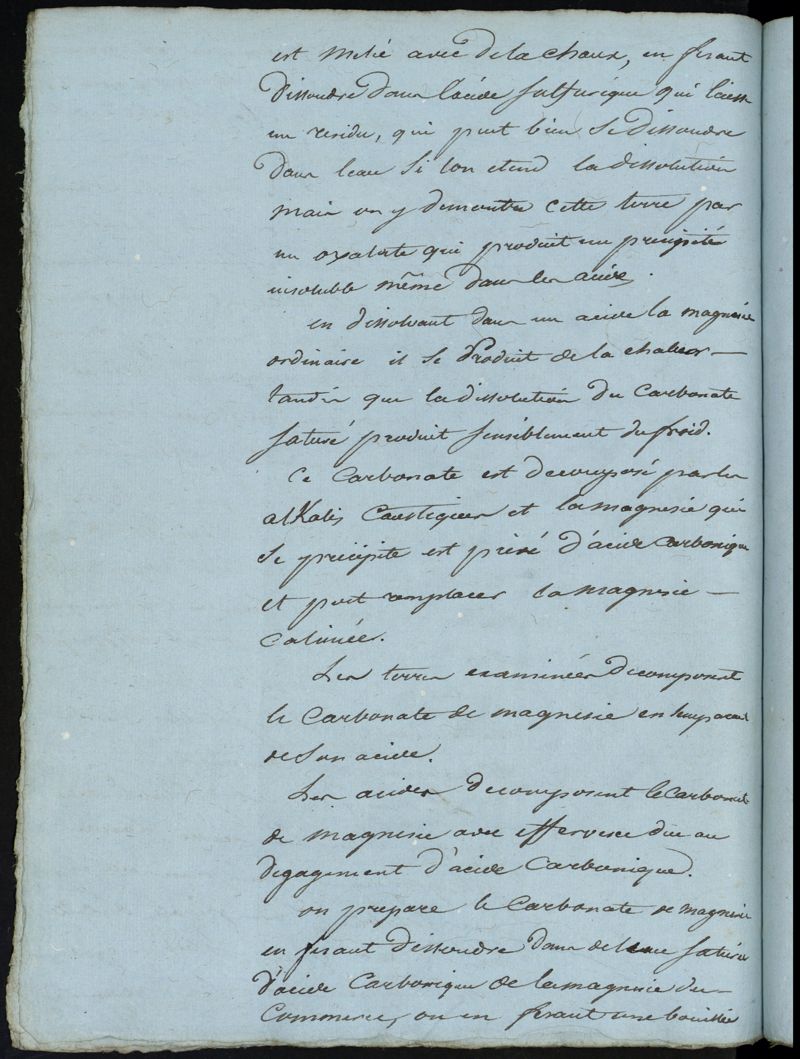 est melié avec de la chaux, en fesant
dissoudre dans lacide sulfurique qui laisse
un residu, qui peut bien se dissoudre
dans leau si lon etend la dissolution
mais on y demontre cette terre par
un oxalate qui produit un precipité
insoluble même dans les acides.
en dissolvant dans un acide la magnesie
ordinaire il se produit de la chaleur —
tandis que la dissolution du carbonate
saturé produit sensiblement du froid.
Ce Carbonate est decomposé par les
alKalis Caustiques et la magnesie qui
se precipite est privé d'acide carbonique
et peut remplacer la magnesie —
calcinée.
Les terres examinées decomposent
le Carbonate de magnesie en semparant
de son acide.
Les acides decomposent le carbonate
de magnesie avec effervesce due au
degagement d'acide Carbonique.
on prepare le Carbonate de magnesie
en fesant dissoudre dans de leau saturée
d'acide Carbonique de la magnesie du —
Commerce, ou en fesant une bouillie